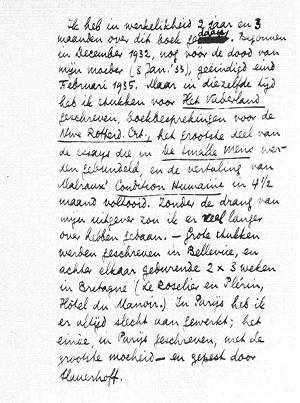 Ik heb in werkelijkheid 2 jaar en 3
maanden over dit boek gedaan. Begonnen
in December 1932, nog vóór de dood van
mijn moeder (3 Jan. '33), geëindigd eind
Februari 1935. Maar in diezelfde tijd
heb ik stukken voor Het Vaderland
geschreven, boekbesprekingen voor de
Nwe Rotterd. Crt., het grootste deel van
de essays die in De Smalle Mens wer-
den gebundeld, en de vertaling van
Malraux' Condition Humaine in 4 1/2
maand voltooid. Zonder de drang van
mijn uitgever zou ik er veel langer
over hebben gedaan. — Grote stukken
werden geschreven in Bellevue, en
achter elkaar gedurende 2 x 3 weken
in Bretagne (Le Roselier en Plérin,
Hôtel du Manoir.) In Parijs heb ik
er altijd slecht aan gewerkt; het
einde, in Parijs geschreven, met de
grootste moeheid — en gepest door
Slauerhoff.